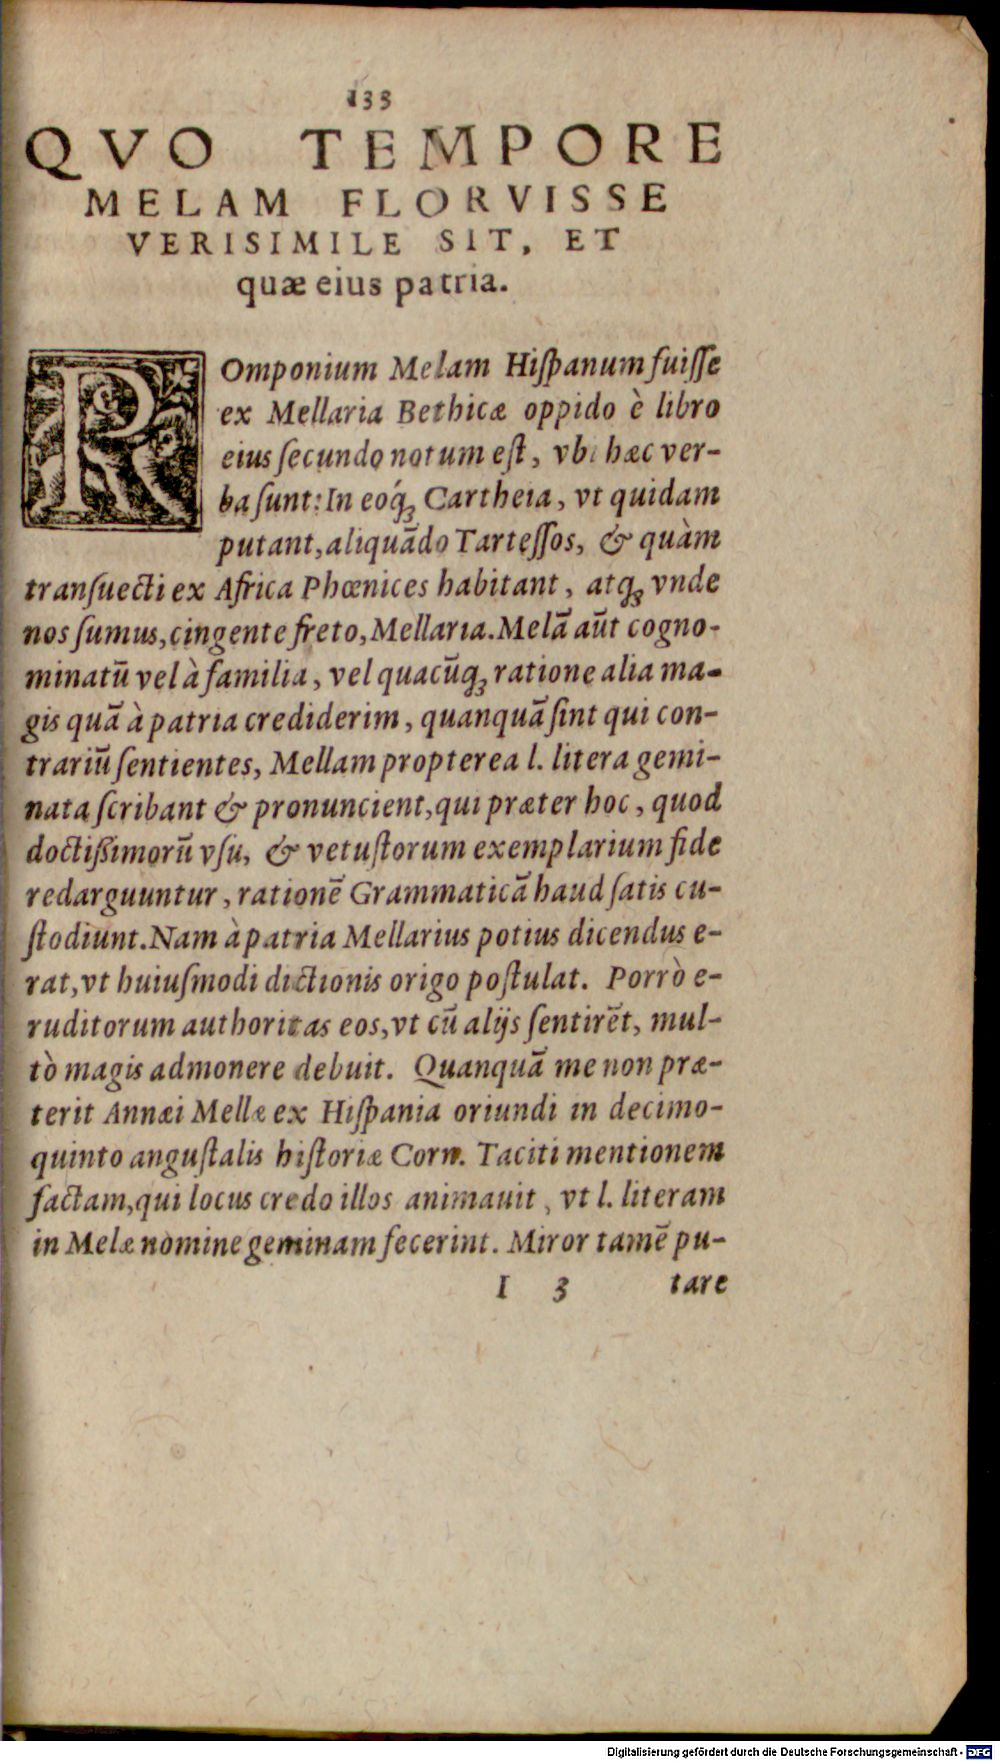 133
QVO TEMPORE
MELAM FLORVISSE
VERISIMILE SIT, ET
quæ eius patria.
ROmponium Melam Hiſpanum fuiſſe
ex Mellaria Bethicæ oppido è libro
eius ſecundo notum eſt, vbi hæc ver-
ba ſunt: In eoq́ꝫ Cartheia, vt quidam
putant, aliquādo Tarteſſos, & quàm
tranſuecti ex Africa Phœnices habitant, atqꝫ vnde
nos ſumus, cingente freto, Mellaria. Melā aūt cogno-
minatū vel à familia, vel quacūqꝫ ratione alia ma-
gis quā à patria crediderim, quanquā ſint qui con-
trariū ſentientes, Mellam propterea l. litera gemi-
nata ſcribant & pronuncient, qui præter hoc, quod
doctißimorū vſu, & vetuſtorum exemplarium fide
redarguuntur, rationē Grammaticā haud ſatis cu-
ſtodiunt. Nam à patria Mellarius potius dicendus e-
rat, vt huiuſmodi dictionis origo poſtulat. Porrò e-
ruditorum authoritas eos, vt cū alijs ſentirēt, mul-
tò magis admonere debuit. Quanquā me non præ-
terit Annæi Mellæ ex Hiſpania oriundi in decimo-
quinto anguſtalis hiſtoriæ Corn. Taciti mentionem
factam, qui locus credo illos animauit, vt l. literam
in Melæ nomine geminam fecerint. Miror tamē pu-
I 3 tare
Digitalisierung gefördert durch die Deutsche Forschungsgemeinschaft - DFG